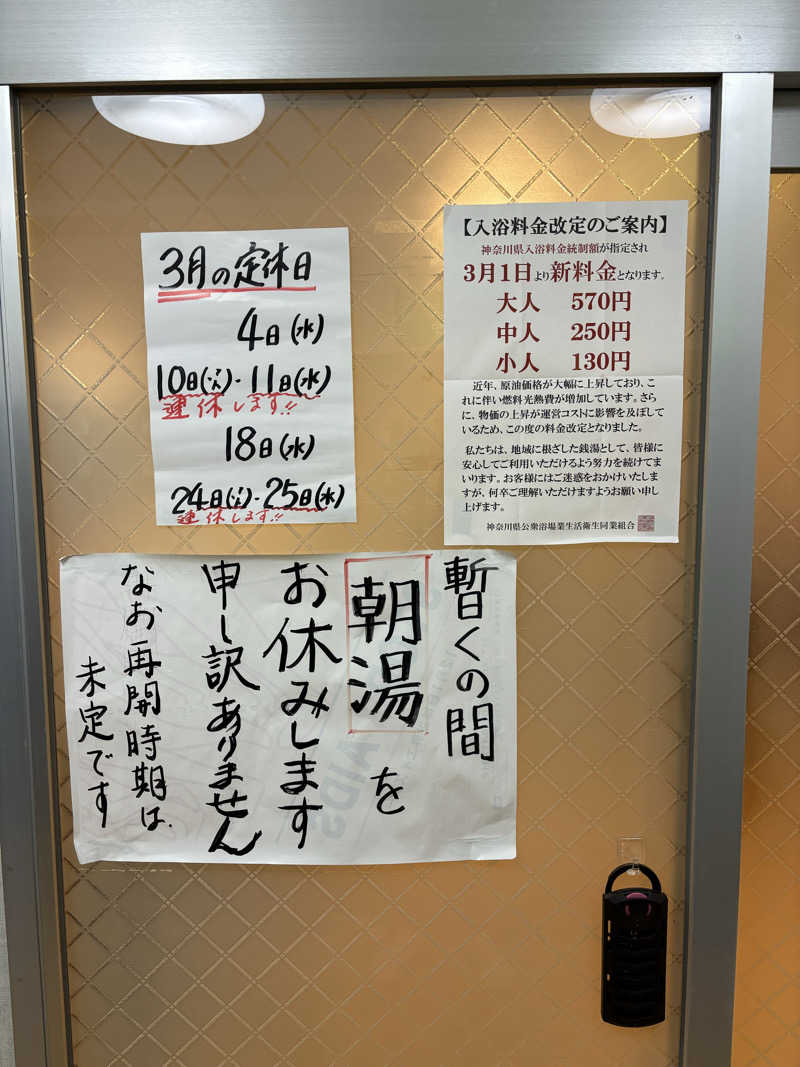 3月の定休日
4日(水)
10日(火)・11日(水)
連休します!!
18日(水)
24日(火)・25日(水)
連休します!!
【入浴料金改定のご案内】
神奈川県入浴料金統制額が指定され
3月1日より新料金となります。
大人 570円
中人 250円
小人 130円
近年、原油価格が大幅に上昇しており、こ
れに伴い燃料光熱費が増加しています。さら
に、物価の上昇が運営コストに影響を及ぼして
いるため、この度の料金改定となりました。
私たちは、地域に根ざした銭湯として、皆様に
安心してご利用いただけるよう努力を続けてま
いります。お客様にはご迷惑をおかけいたしま
すが、何卒ご理解いただけますようお願い申し
上げます。
神奈川県公衆浴場業生活衛生同業組合
暫くの間
朝湯を
お休みします
申し訳ありません
なお再開時期は
未定です